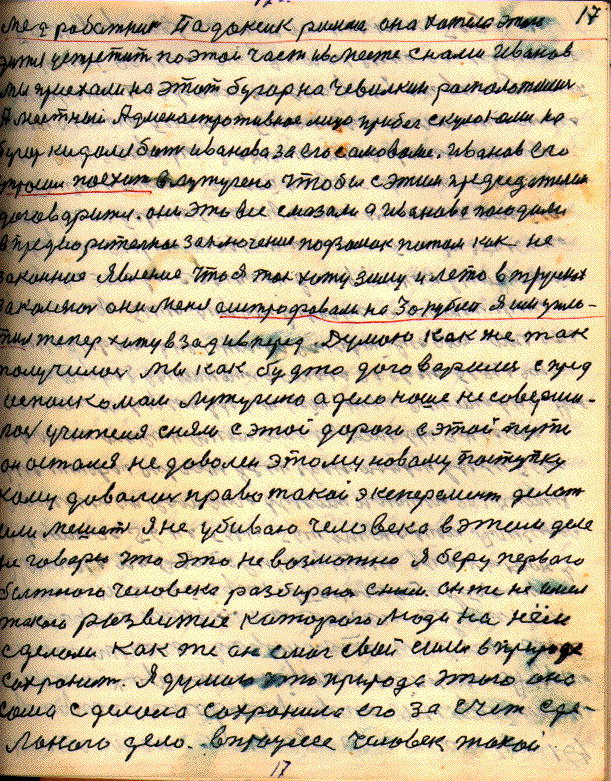 17
мед работник Падоксик римма она хотела этом
дитя устретит поэтой части вместе снами Иванов
мы приехали на этот бугор на чевилкин расположились
А местный Административное лицо прибег скулаками на
бугор кидался бит иванова за его самовали. Иванов его
просил поехат в лутугено чтобы сэтим председателем
договарится. они это все смазали а Иванова посодили
в предворителное заключение подзамок потом как не
законная явление что я так хожу зиму и лето в трусах
закаленом они меня оштрафовали на 30 рублей я им упло-
тил тепер хожу взад ивперед. Думаю как же так
получилос мы как будто договарилис с пред
исполкомам лутугино а дело наше не соверши-
лос учителя сняли с этой дороги с этой пути
он остался не доволен этому новаму поступку
кому довалос право такой эксперемент делат
или мешат я не убиваю человека в этом деле
не говару что это не возможно я беру первого
болтного человека разбираюс сним. он же не имел
такого развития каторого люди на нём
сделали как же он смог свои сили в природе
сохранит. Я думаю что природа этого она
сама сделала сохранила его за счет сде-
ланого дело. впроцессе человек такой
17